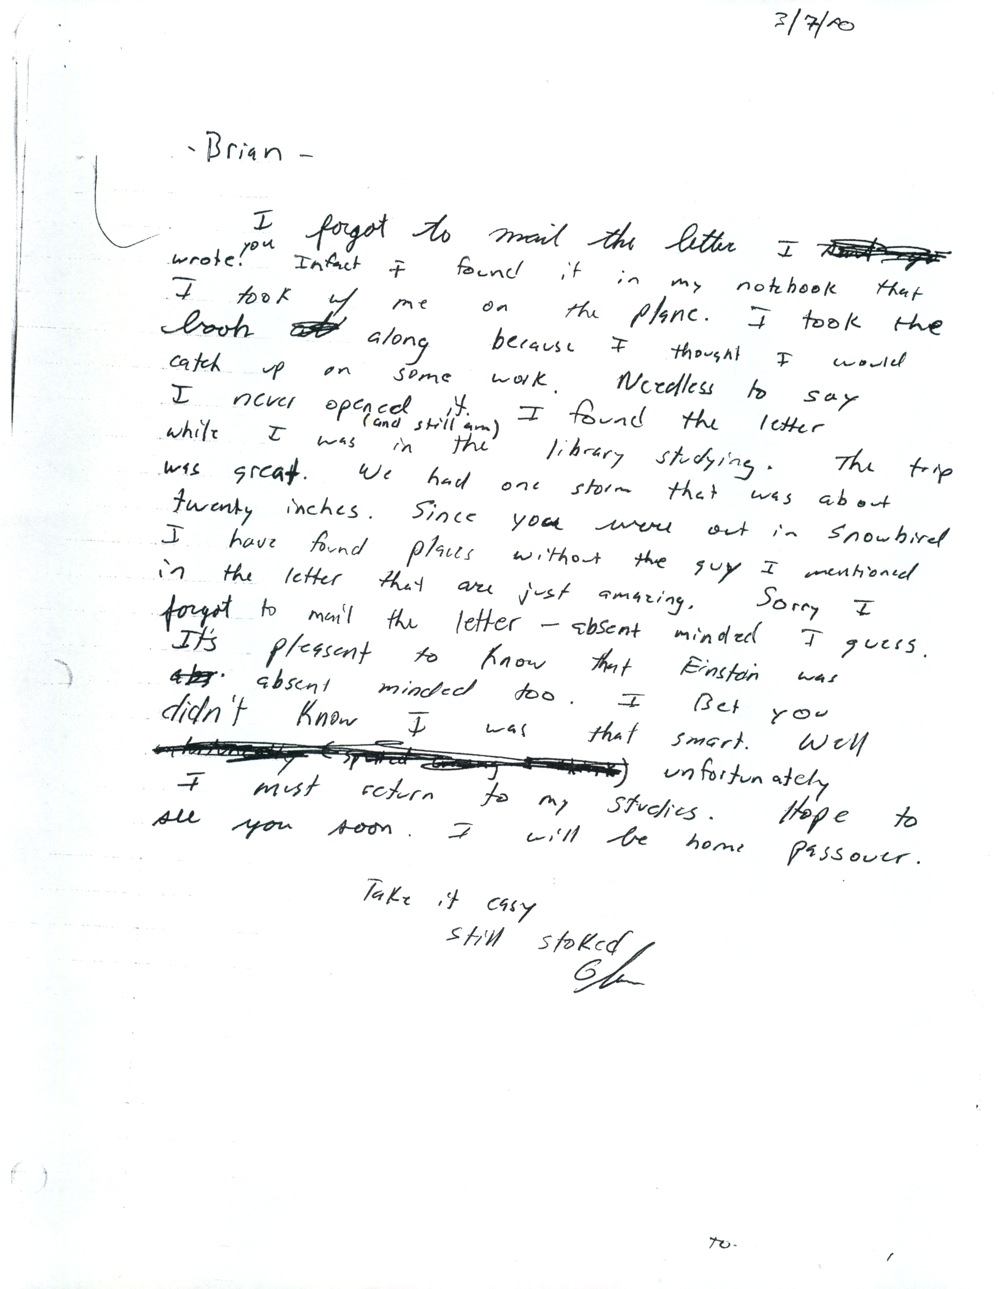 3/7/80
- Brian -
I forgot to mail the letter I
wrote you! Infact I found it in my notebook that
I took w/ me on the plane. I took the
book along because I thought I would
catch up on some work. Needless to say
I never opened it. I found the letter
while I was (and still am) in the library studying. The trip
was great. We had one storm that was about
twenty inches. Since you were out in Snowbird
I have found places without the guy I mentioned
in the letter that are just amazing. Sorry I
forgot to mail the letter - absent minded I guess.
It's pleasent to know that Einstein was
absent minded too. I Bet you
didn't know I was that smart. Well
unfortunately
I must return to my studies. Hope to
see you soon. I will be home passover.
Take it easy
still stoked